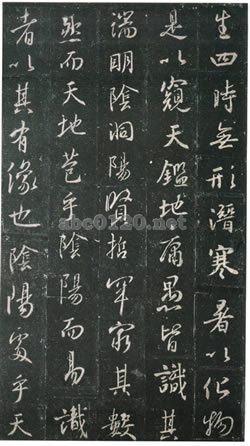 生四時無形潛寒暑以化物
是以窺天鑑地庸愚皆識其
端明陰洞陽賢哲罕窮其數
然而天地苞乎陰陽而易識
者以其有像也陰陽處乎天
abc0120.net